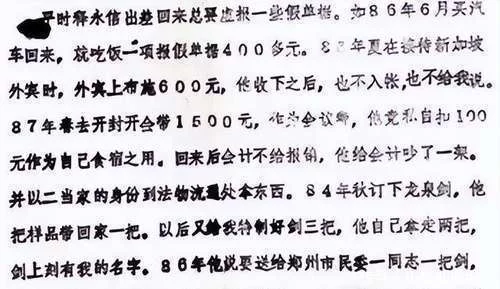 平时释永信出差回来总要虚报一些假单据。如86年6月买汽
车回来，就吃饭一项报假单据400多元。8 年夏在接待新加坡
外宾时，外宾上布施600元，他收下之后，也不入帐，也不给我说。
87年春去开封开会带1500元，作为会议 ，他竟私自扣100
元作为自己食宿之用。回来后会计不给报销，他给会计吵了一架。
并以二当家的身份到法物流通处拿东西。84年秋订下龙泉剑，他
把样品带回家一把。以后又给我特制好剑三把，他自己拿定两把，
剑上刻有我的名字。86年他说要送给郑州市民委一同志一把剑，